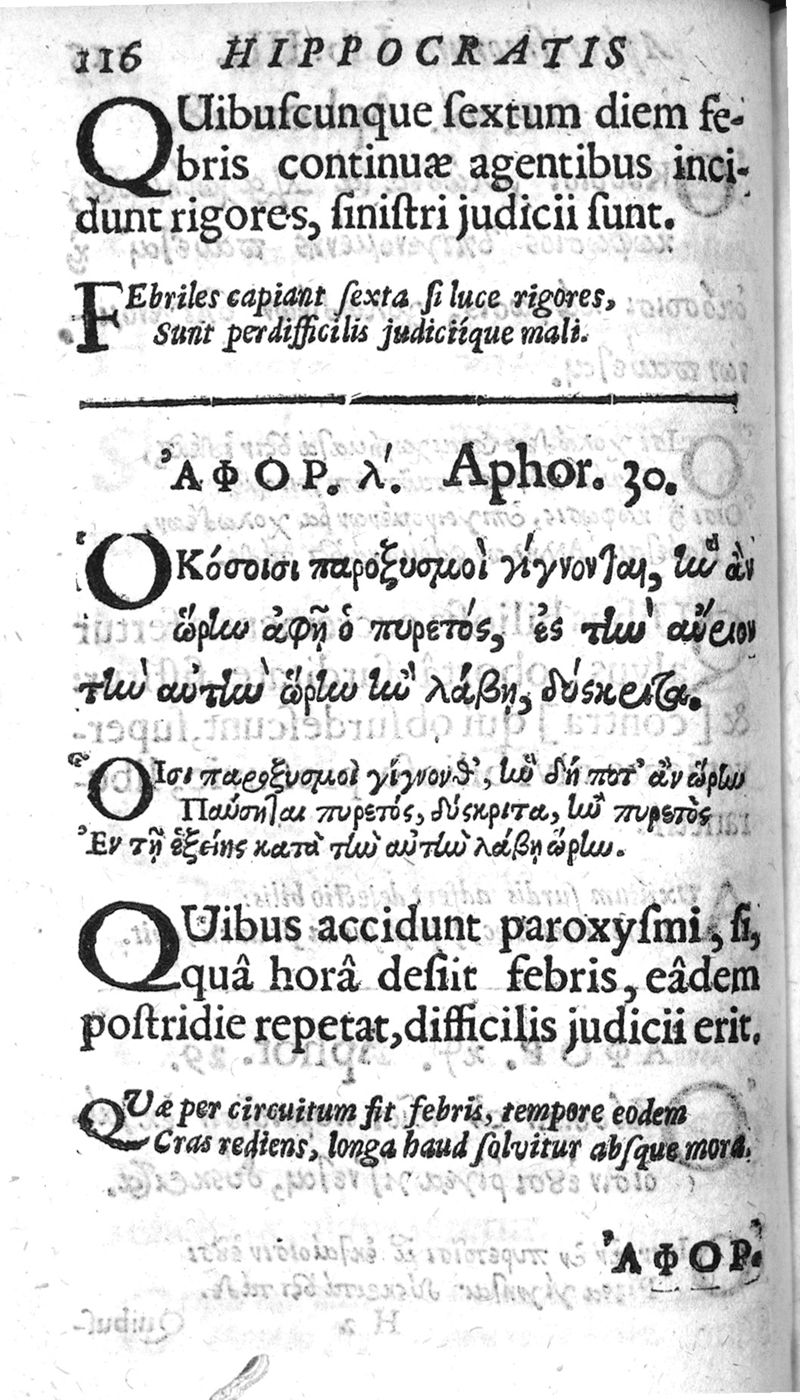 116 HIPPOCRATIS
QUibuſcunque ſextum diem fe-
bris continuæ agentibus inci-
dunt rigores, ſiniſtri judicii ſunt.
FEbriles capiant ſexta ſi luce rigores,
Sunt perdifficilis judiciíque mali.
ἈΦΟΡ. λʹ. Aphor. 30.
ὉΚόσοισι παροξυσμοὶ γίγνονται, ἢν ἂν
ὥρην ἀφῇ ὁ πυρετός, ἐς τὴν αὔριον
τὴν αὐτὴν ὥρην ἢν λάβῃ, δύσκριτα.
ὉΙσι παροξυσμοὶ γίγνονθ᾽, ἣν δή ποτ᾽ ἂν ὥρην
Παύσηται πυρετός, δύσκριτα, ἢν πυρετὸς
Ἐν τῇ ἑξείης κατὰ τὴν αὐτὴν λάβῃ ὥρην.
QUibus accidunt paroxyſmi, ſi,
quâ horâ deſiit febris, eâdem
poſtridie repetat, difficilis judicii erit.
QUæ per circuitum fit febris, tempore eodem
Cras rediens, longa haud ſolvitur abſque mora.
ἈΦΟΡ.